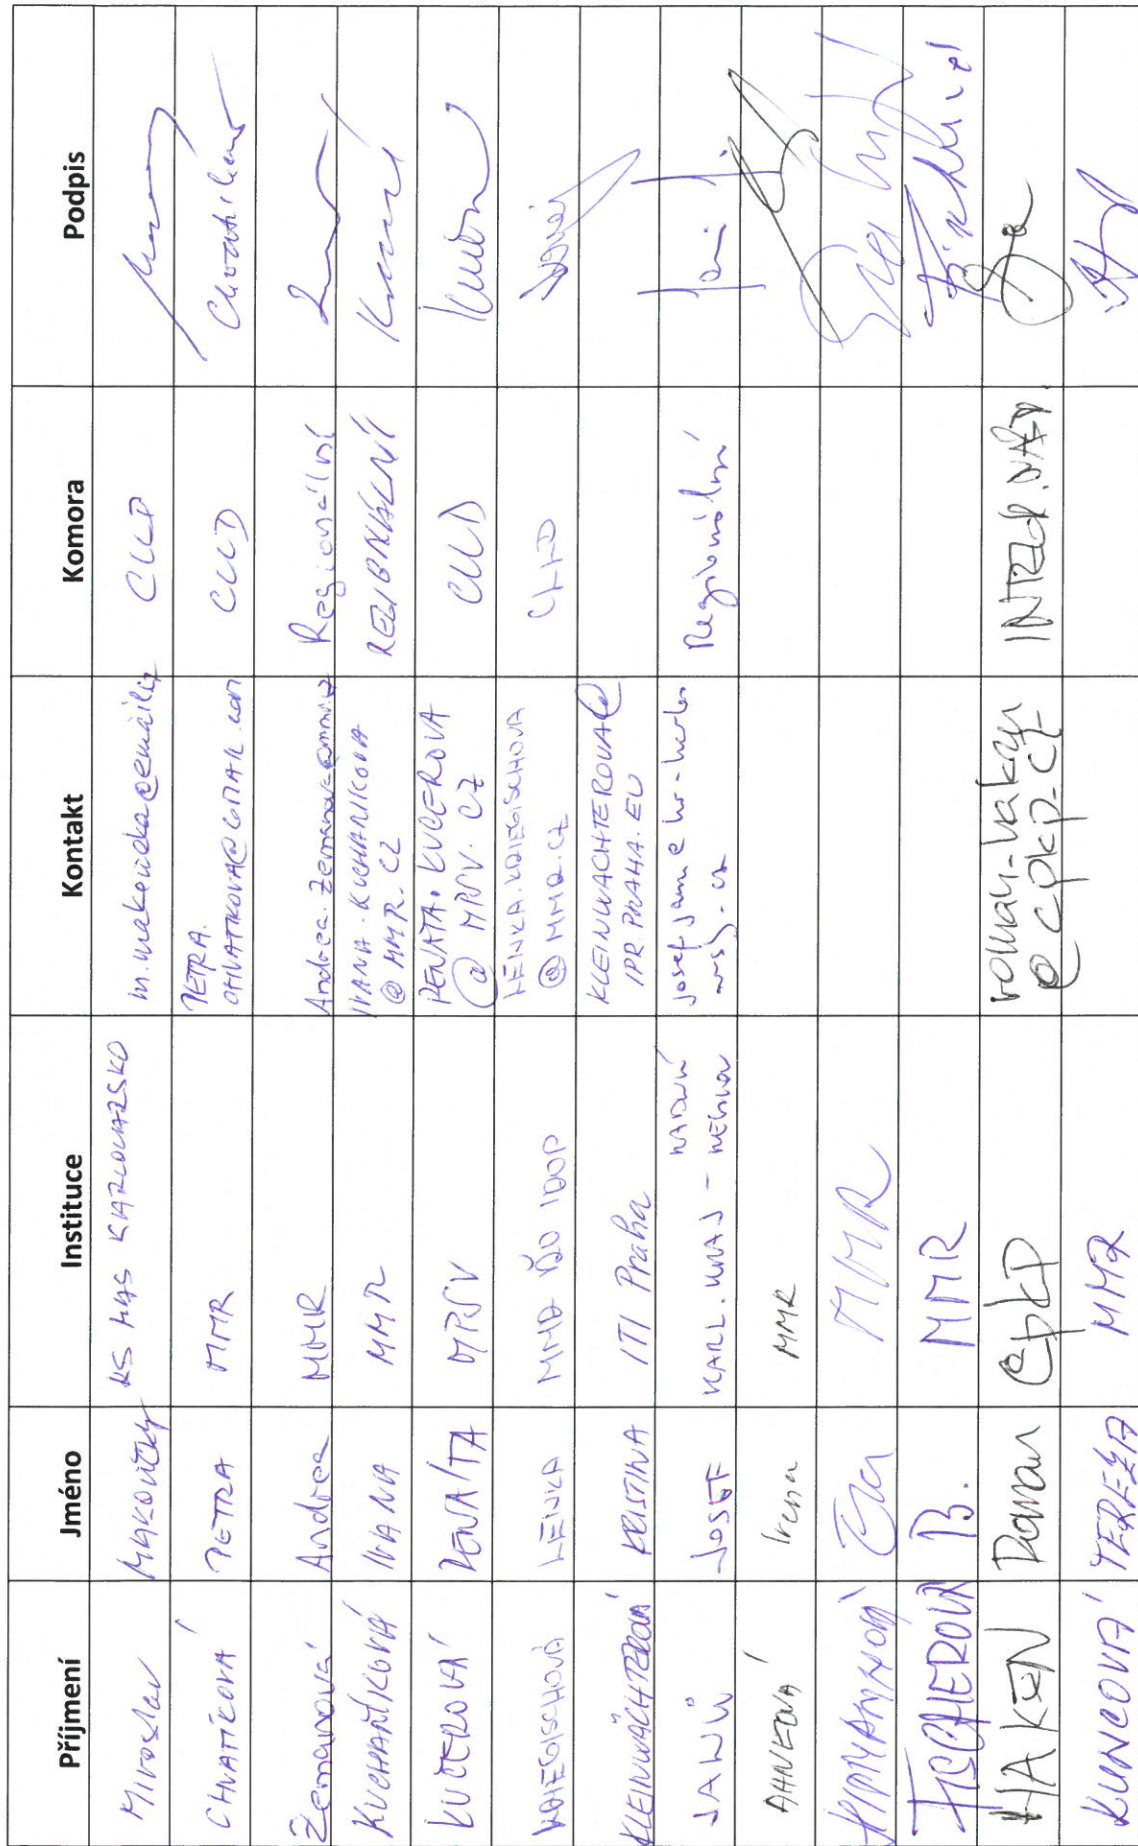 Příjmení Jméno Instituce Kontakt Komora Podpis
Miroslav Makovičky KS MAS KARLOVARSKO CLLD
CHVATÍKOVÁ PETRA MMR PETRA.
CHVATIKOVA@GMAIL.COM CLLD
Zemanová Andrea MMR Regionální
KUCHAŘÍKOVÁ IVANA MMR IVANA.KUCHARIKOVA
@MMR.CZ REGIONÁLNÍ
KUČEROVÁ RENATA MPSV RENATA.KUCEROVA
@MPSV.CZ CLLD
KRIEGISCHOVÁ LENKA MMR LENKA.KRIEGISCHOVA
@MMR.CZ CLLD
KLEINWÄCHTEROVÁ KRISTINA ITI Praha KLEINWACHTEROVA@
IPR.PRAHA.EU
JANŮ JOSEF KARL. KRAJ - Regionální
AHNEOVÁ Irena MMR
Eva MMR
FISCHEROVÁ B. MMR
HAKEN Roman CpKP roman.haken
@cpkp.cz
KUNCOVÁ TEREZA MMR